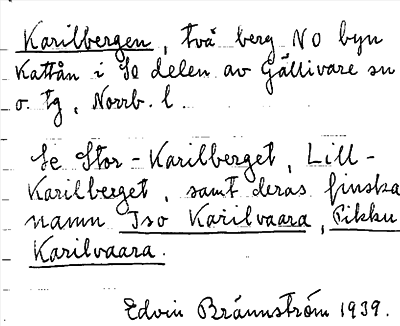 Karilbergen, två berg NO byn
Kattån i Sö delen av Gällivare sn
o. tg, Norrb. l.
Se Stor-Karilberget, Lill-
Karilberget, samt deras finska
namn Iso Karilvaara, Pikku
Karilvaara.
Edvin Brännström 1939.